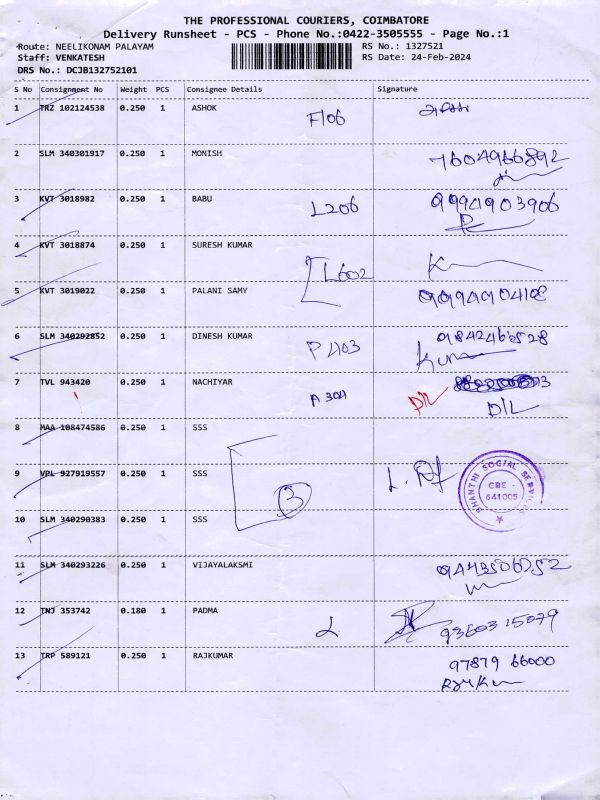 THE PROFESSIONAL COURIERS, COIMBATORE
Delivery Runsheet - PCS - Phone No.:0422-3505555 - Page No.:1
Route: NEELIKONAM PALAYAM RS No.: 1327521
Staff: VENKATESH RS Date: 24-Feb-2024
DRS No.: DCJB132752101
S No Consignment No Weight PCS Consignee Details Signature
1 TRZ 102124538 0.250 1 ASHOK F106
2 SLM 340301917 0.250 1 MONISH 7604966892
3 KVT 3018982 0.250 1 BABU L206 9994903906
4 KVT 3018874 0.250 1 SURESH KUMAR L602
5 KVT 3019022 0.250 1 PALANI SAMY
6 SLM 340292852 0.250 1 DINESH KUMAR P403 9842466528
Kumar
7 TVL 943420 0.250 1 NACHIYAR A 304 D/L
D/L
8 MAA 108474586 0.250 1 SSS
9 VPL 927919557 0.250 1 SSS 3
SHANTHI SOCIAL SERVICES
CBE - 641005
10 SLM 340290383 0.250 1 SSS
11 SLM 340293226 0.250 1 VIJAYALAKSMI
12 TNJ 353742 0.180 1 PADMA L 9360315079
13 TRP 589121 0.250 1 RAJKUMAR 97879 66000